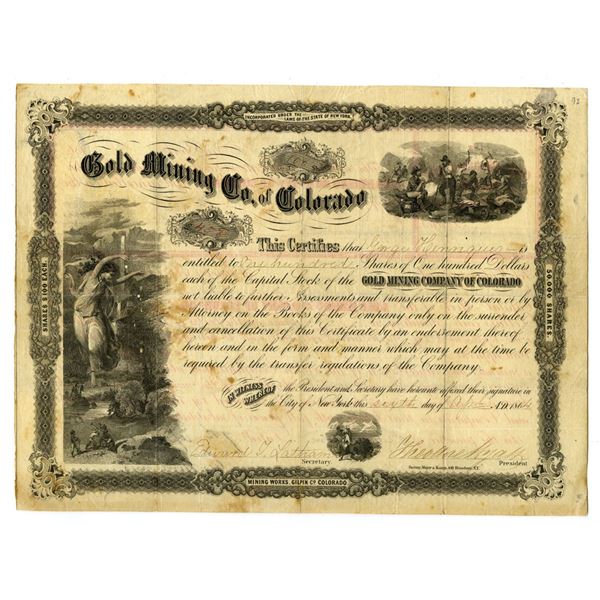 92
INCORPORATED UNDER THE
LAWS OF THE STATE OF NEW YORK
Gold Mining Co. of Colorado
This Certifies that George Henriques is
entitled to One hundred Shares of One hundred Dollars
each of the Capital Stock of the GOLD MINING COMPANY OF COLORADO
not liable to further Assessments and transferable in person or by
Attorney on the Books of the Company only on the surrender
and cancellation of this Certificate by an endorsement thereof
hereon and in the form and manner which may at the time be
required by the transfer regulations of the Company.
IN WITNESS WHEREOF the President and Secretary have hereunto affixed their signature in
the City of New York this day of A.D. 1864
Edward Latham
Secretary
President
MINING WORKS, GILPIN CO. COLORADO
SHARES $100 EACH.
50,000 SHARES.